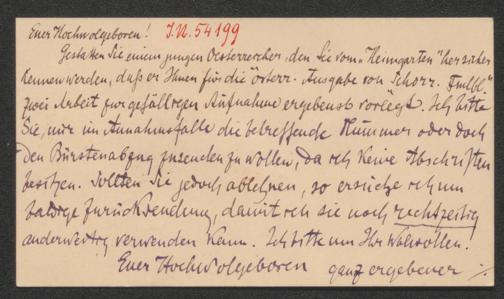 Euer Hochwolgeboren! I.N. 54199
Gestatten Sie einem jungen Oesterreicher, den Sie vom „Heimgarten" her sicher
kennen werden, daß er Ihnen für die österr. Ausgabe von Schorr. Fmlbl.
zwei Arbeit zur gefälligen Aufnahme ergebenst vorlegt. Ich bitte
Sie, mir im Annahmsfalle die betreffende Nummer oder doch
den Bürstenabzug zusenden zu wollen, da ich keine Abschriften
besitze. Sollten Sie jedoch ablehnen, so ersuche ich um
baldige Zurücksendung, damit ich sie noch rechtzeitig
anderweitig verwenden kann. Ich bitte um Ihr Wolwollen!
Euer Hochwolgeboren ganz ergebener